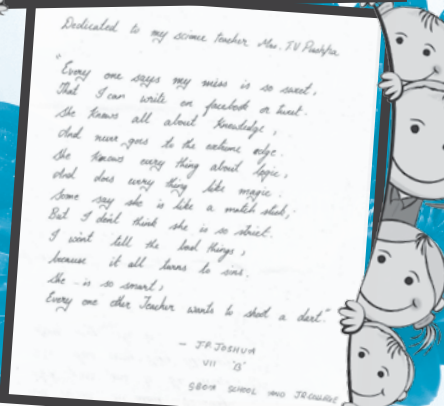 Dedicated to my science teacher Mrs. T.V Pushpa
"Every one says my miss is so sweet,
That I can write on facebook or tweet.
She knows all about knowledge,
And never goes to the extreme edge.
She knows every thing about logic,
And does every thing like magic.
Some say she is like a match stick,
But I don't think she is so strict.
I wont tell the bad things,
because it all turns to sins.
She is so smart,
Every one other Teacher wants to shoot a dart."
- J.P. JOSHUA
VII 'B'
SBOA SCHOOL AND JR.COLLEGE